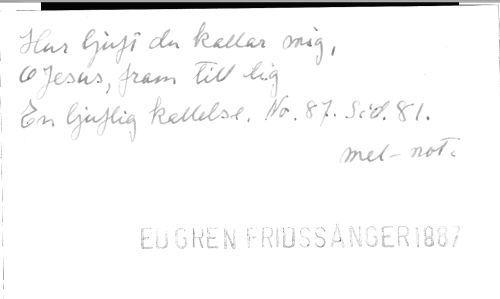 Hur ljuft du kallar mig,
O Jesus, fram till dig
En ljuflig kallelse. No. 87. Sid. 81.
mel-not.
EUGREN FRIDSSÅNGER 1887